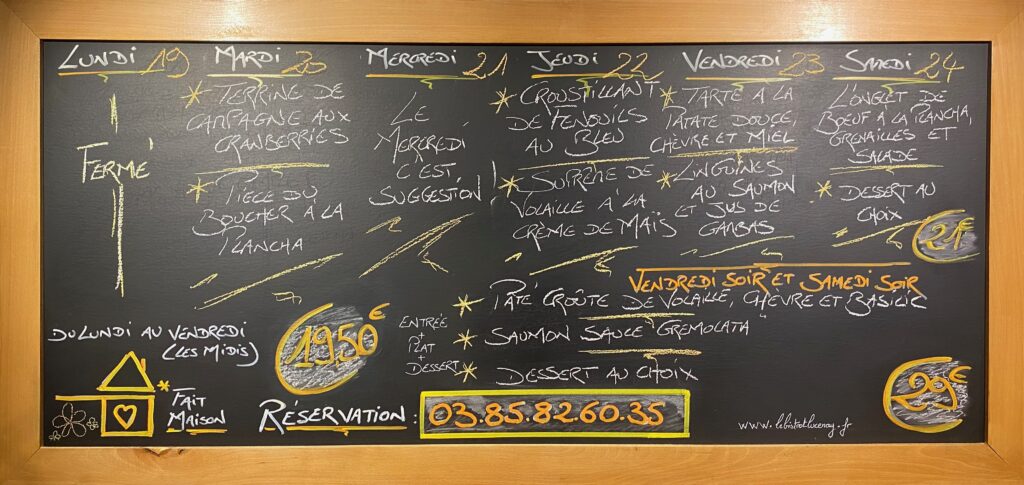 LUNDI 19
FERMÉ
MARDI 20
* TERRINE DE
CAMPAGNE AUX
CRANBERRIES
* PIÈCE DU
BOUCHER À LA
PLANCHA
MERCREDI 21
LE
MERCREDI
C'EST
SUGGESTION!
JEUDI 22
* CROUSTILLANT
DE FENOUILS
AU BLEU
* SUPRÊME DE
VOLAILLE À LA
CRÈME DE MAÏS
VENDREDI 23
* TARTE A LA
PATATE DOUCE,
CHÈVRE ET MIEL
* LINGUINES
AU SAUMON
ET JUS DE
GAMBAS
SAMEDI 24
L'ONGLET DE
BOEUF A LA PLANCHA,
GRENAILLES ET
SALADE
* DESSERT AU
CHOIX
21€
VENDREDI SOIR ET SAMEDI SOIR
* PÂTÉ CROÛTE DE VOLAILLE, CHÈVRE ET BASILIC
* SAUMON SAUCE GREMOLATA
* DESSERT AU CHOIX
29€
DU LUNDI AU VENDREDI
(LES MIDIS)
19,50€
ENTRÉE
+
PLAT
+
DESSERT
* FAIT
MAISON
RÉSERVATION : 03.85.82.60.35
www.lebistrotlucenay.fr